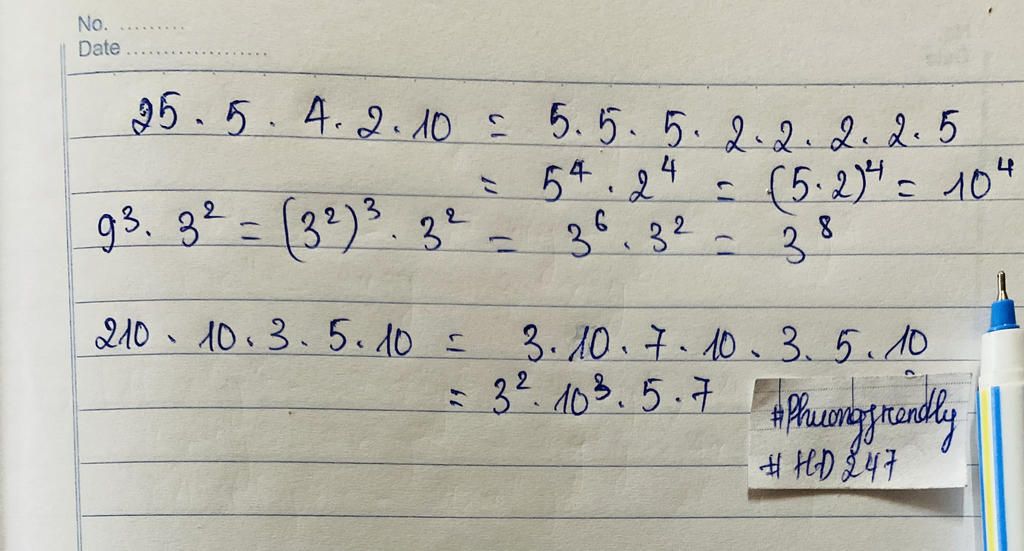 No. .........
Date ..................
25 . 5 . 4 . 2 . 10 = 5 . 5 . 5 . 2 . 2 . 2 . 2 . 5
= 5⁴ . 2⁴ = (5 . 2)⁴ = 10⁴
9³ . 3² = (3²)³ . 3² = 3⁶ . 3² = 3⁸
210 . 10 . 3 . 5 . 10 = 3 . 10 . 7 . 10 . 3 . 5 . 10
= 3² . 10³ . 5 . 7
#Phuongfrendly
#HD247